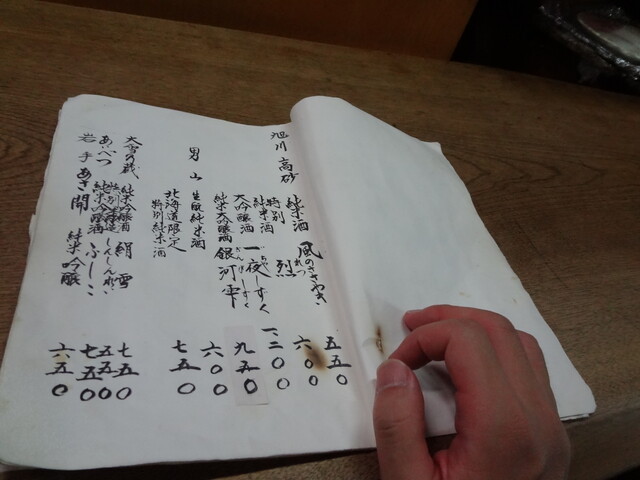 旭川 高砂
純米酒 風のささやき 五五〇
特別純米酒 烈 れつ 六〇〇
大吟醸酒 一夜しずく いちやしずく 一、二〇〇
純米大吟醸 銀河雫 ぎんがしずく 九五〇
男山 生酛純米酒 六〇〇
北海道限定 特別純米酒 七五〇
大雪の蔵 純米吟醸酒 絹雪 七五〇
純米吟醸酒 五五〇
あべつ ふしこ 七五〇
岩手 あさ開 純米吟醸 六五〇